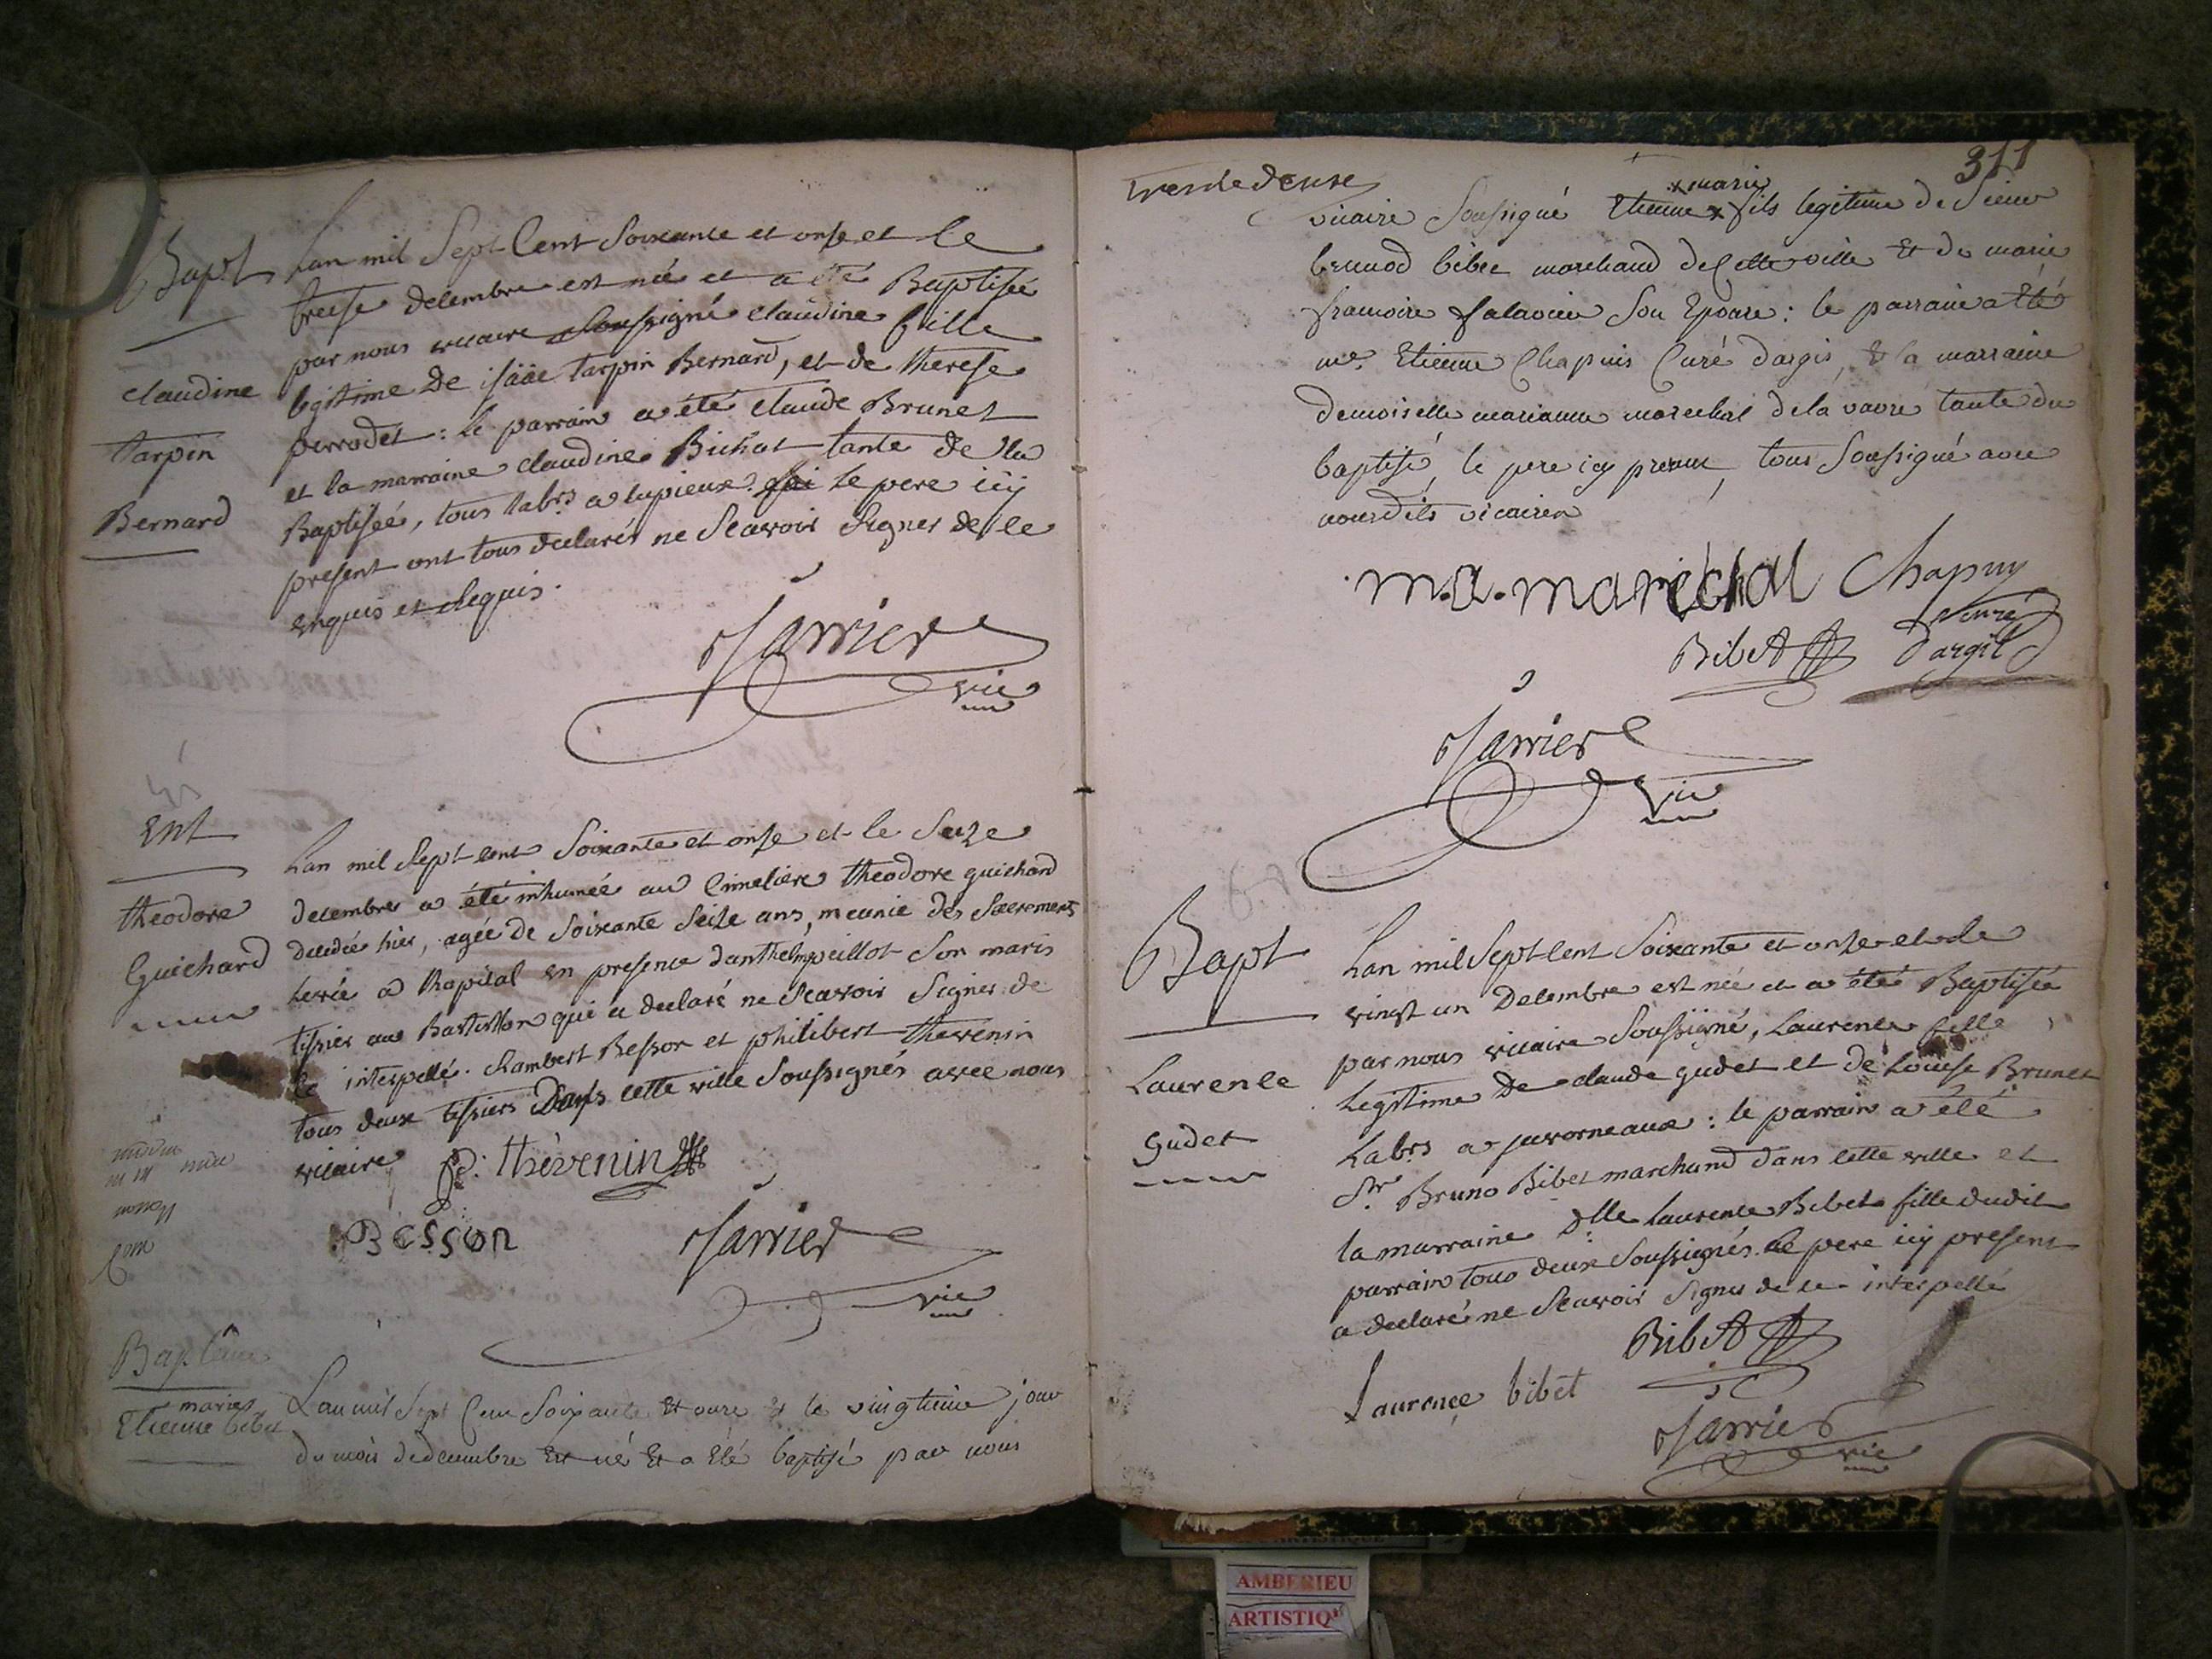 Bapt
claudine
tarpin
Bernard
Lan mil Sept Cent Soixante et onse et le
treise decembre est née et a été Baptisée
par nous vicaire Soussigné claudine fille
legitime de isaäc tarpin Bernard, et de therese
perrodet : le parrain a été claude Brunet
et la marraine claudine Bichat tante de la
Baptisée, tous labrs a tupieux. le pere icy
present ont tous declarés ne Scavoir Signer de ce
enquis et requis.
Jarrier
vic
Ent
theodore
Guichard
Lan mil Sept cent Soixante et onse et le Seize
decembre a été inhumée au Cimetière theodore guichard
decedée hier, agée de Soixante Seize ans, meunie des Sacrements
levée a lhopital en presence danthelme peillot Son maris
tissier au Bastillon qui a declaré ne Scavoir Signer de
ce interpellé. Lambert Besson et philibert thevenin
tous deux tissiers Dans cette ville Soussignés avec nous
vicaire
p: thèvenin
Besson
Jarrier
vic
Baptême
Etienne marie bibet
Lan mil Sept Cent Soixante Et onze & le vingtieme jour
du mois de decembre Est né Et a Eté baptisé par nous
trente deuxe
311
vicaire Soussigné Etienne x fils legitime de Sieur
x marie
brunod bibet marchand de Cette ville Et de marie
francoise falavier Son Epouse : le parrain a Eté
me. Etienne Chapuis Curé dargis, & la marraine
demoiselle marianne marechal de la vavre tante du
baptisé, le pere icy present, tous Soussigné avec
nousdits vicaire
m.a. marèchal
Chapuy
curé
dargil
Bibet
Jarrier
vic
Bapt
Laurence
Gudet
Lan mil Sept Cent Soixante et onse et le
vingt un Decembre est née et a été Baptisée
par nous vicaire Soussigné, Laurence fille
Legitime De claude gudet et de Louise Brunet
Labrs a javorneaux : le parrain a été
Sr. Bruno Bibet marchand dans cette ville et
la marraine Dlle Laurence Bibet fille dudit
parrain tous deux Soussignés. Le pere icy present
a declaré ne Scavoir Signer de ce interpellé
Bibet
Laurence bibet
Jarrier
vic
AMBERIEU
ARTISTIQ